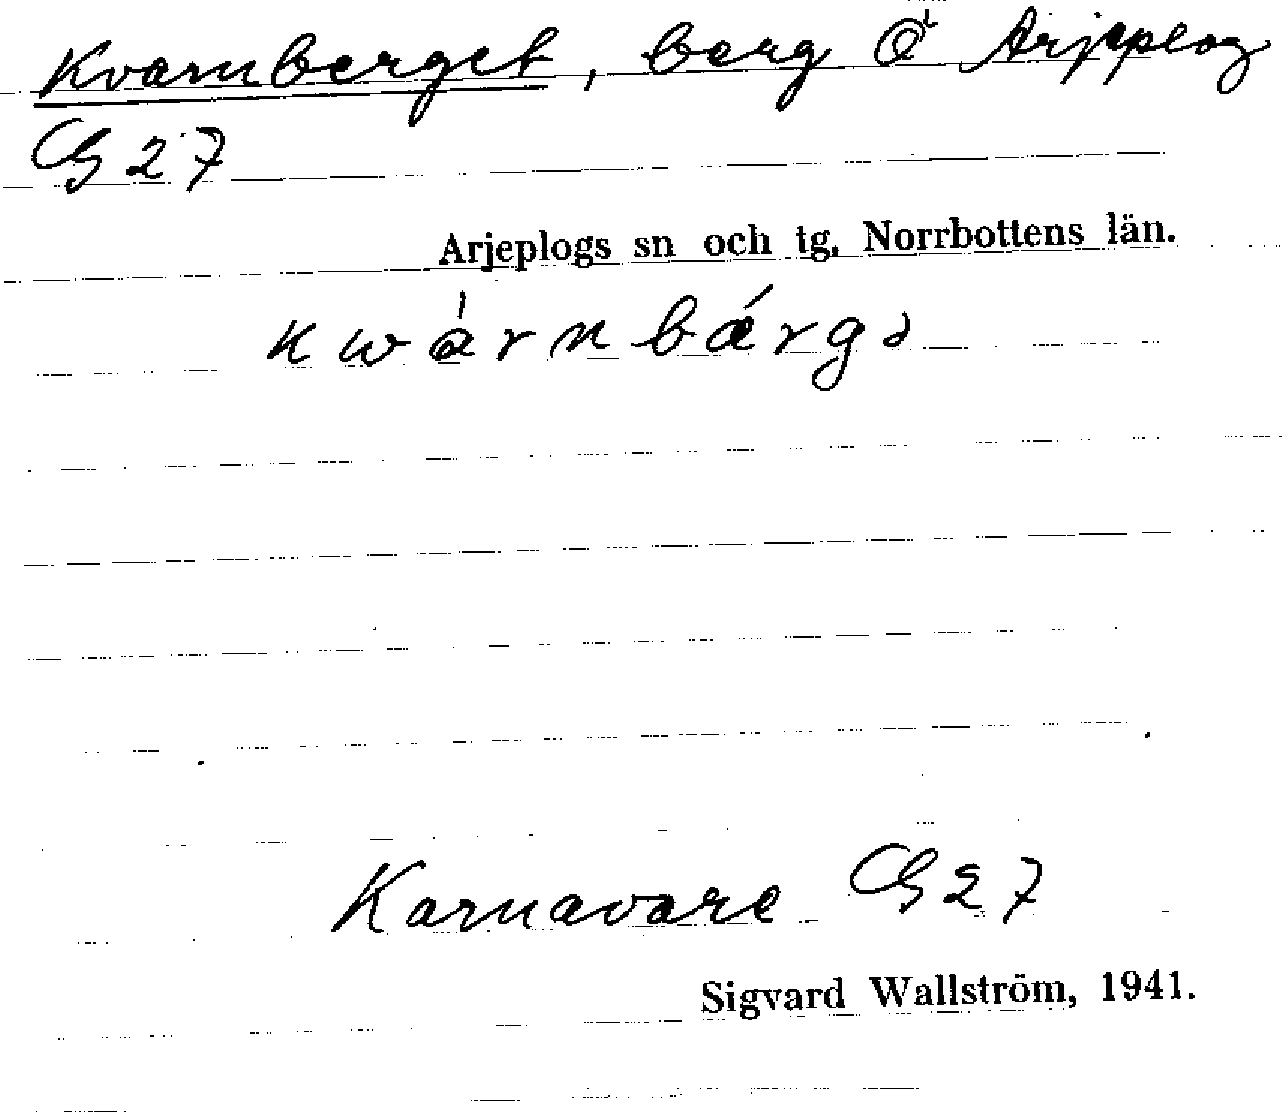 Kvarnberget, berg Ö i Arjeplog
G27
Arjeplogs sn och tg, Norrbottens län.
kwàrnbárgə
Karnavare G27
Sigvard Wallström, 1941.